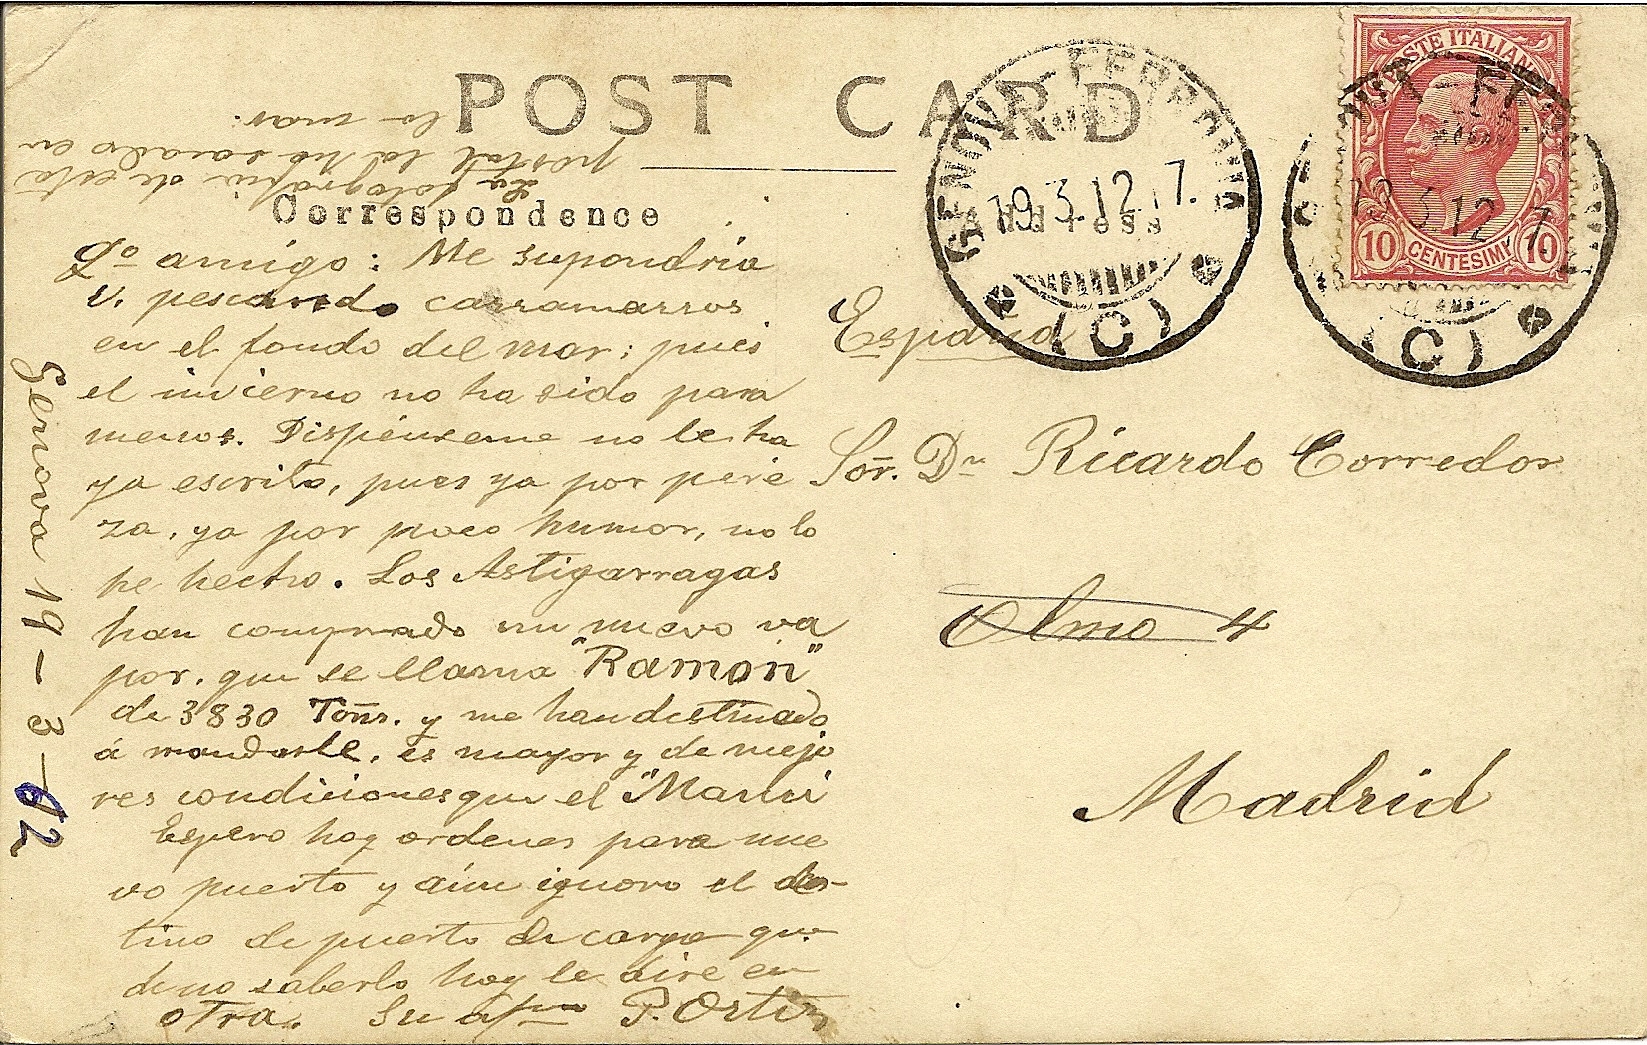 POST CARD
Correspondence
La fotografia de esta
postal la he sacado en
la mar.
Qº amigo: Me supondria
V. pescando carramarros
en el fondo del mar; pues
el invierno no ha sido para
menos. Dispénseme no le ha
ya escrito, pues ya por pere
za, ya por poco humor, no lo
he hecho. Los Astigarragas
han comprado un nuevo va
por, que se llama "Ramón"
de 3830 Tons. y me han destinado
á mandarle, es mayor y de mejo
res condiciones que el "Mari
Espero hoy ordenes para nue
vo puerto y aún ignoro el des-
tino de puerto de carga que
de no saberlo hoy le dire en
otra. Su afmo P. Ortiz
Genova 19-3-12
GENOVA-FERROVIA
19.3.12.17.
(C)
Address
POSTE ITALIANE
10 CENTESIMI 10
19.3.12.17.
(C)
España
Sor. Dn Ricardo Corredor
Olmo 4
Madrid